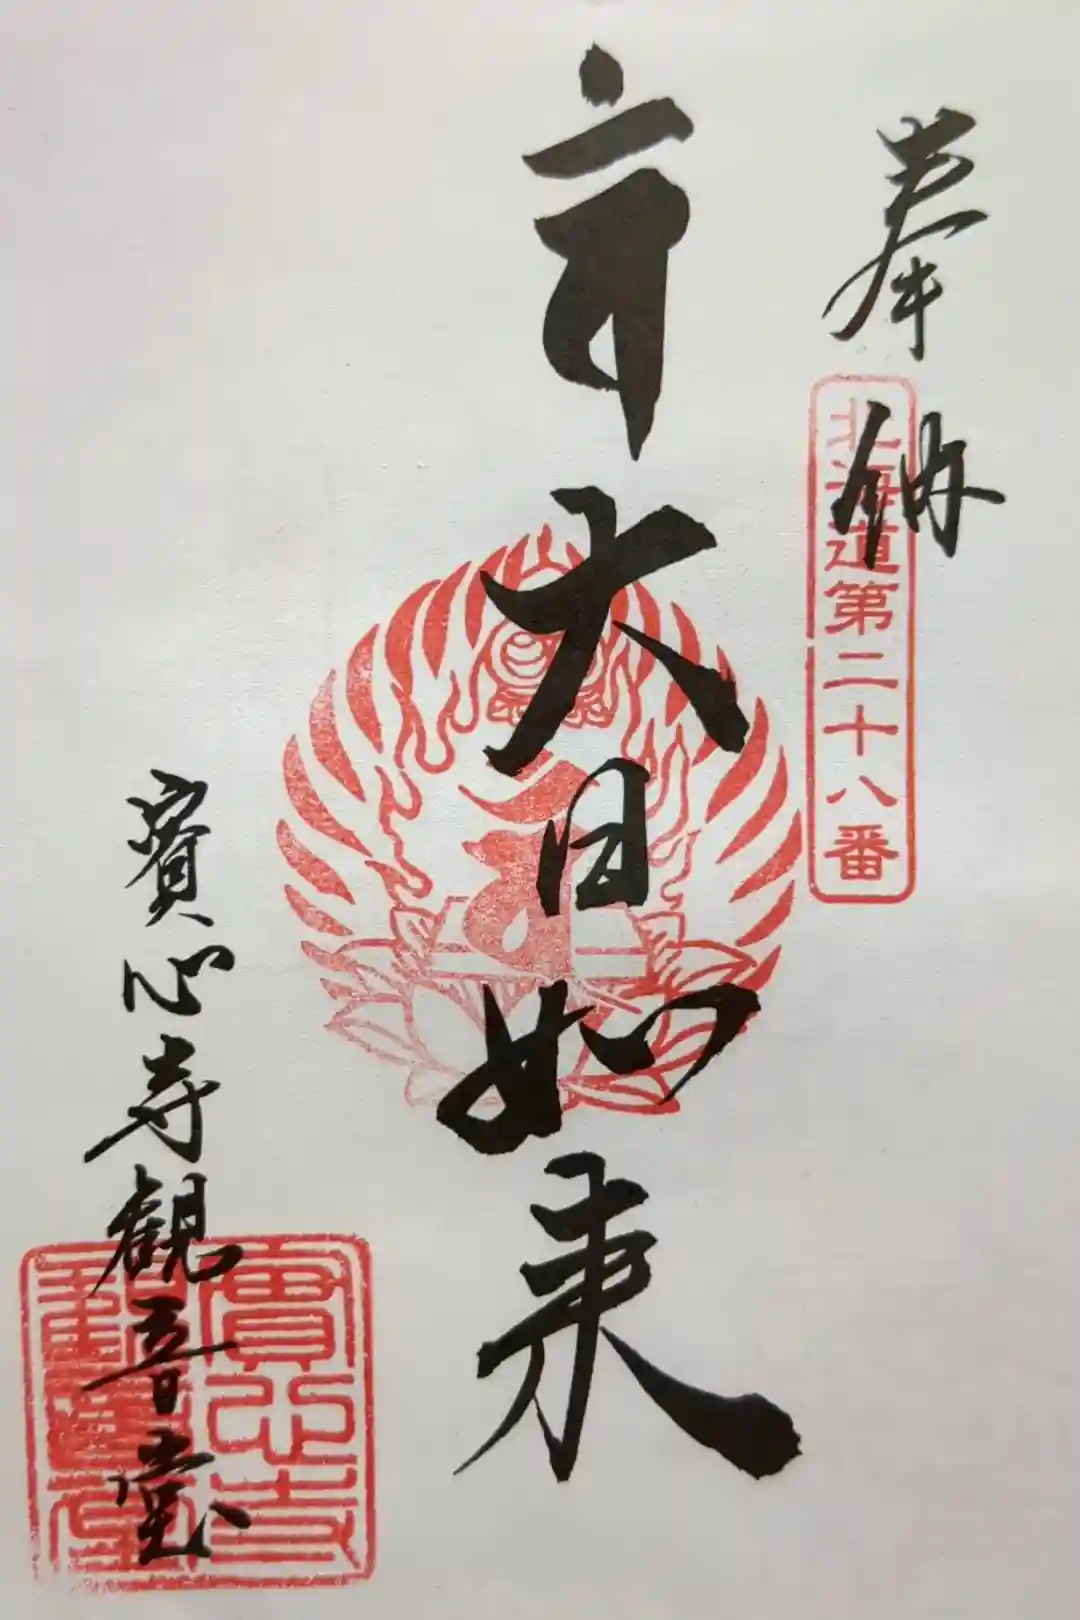 奉納
北海道第二十八番
大日如来
寳心寺観音堂
寳心寺観音堂